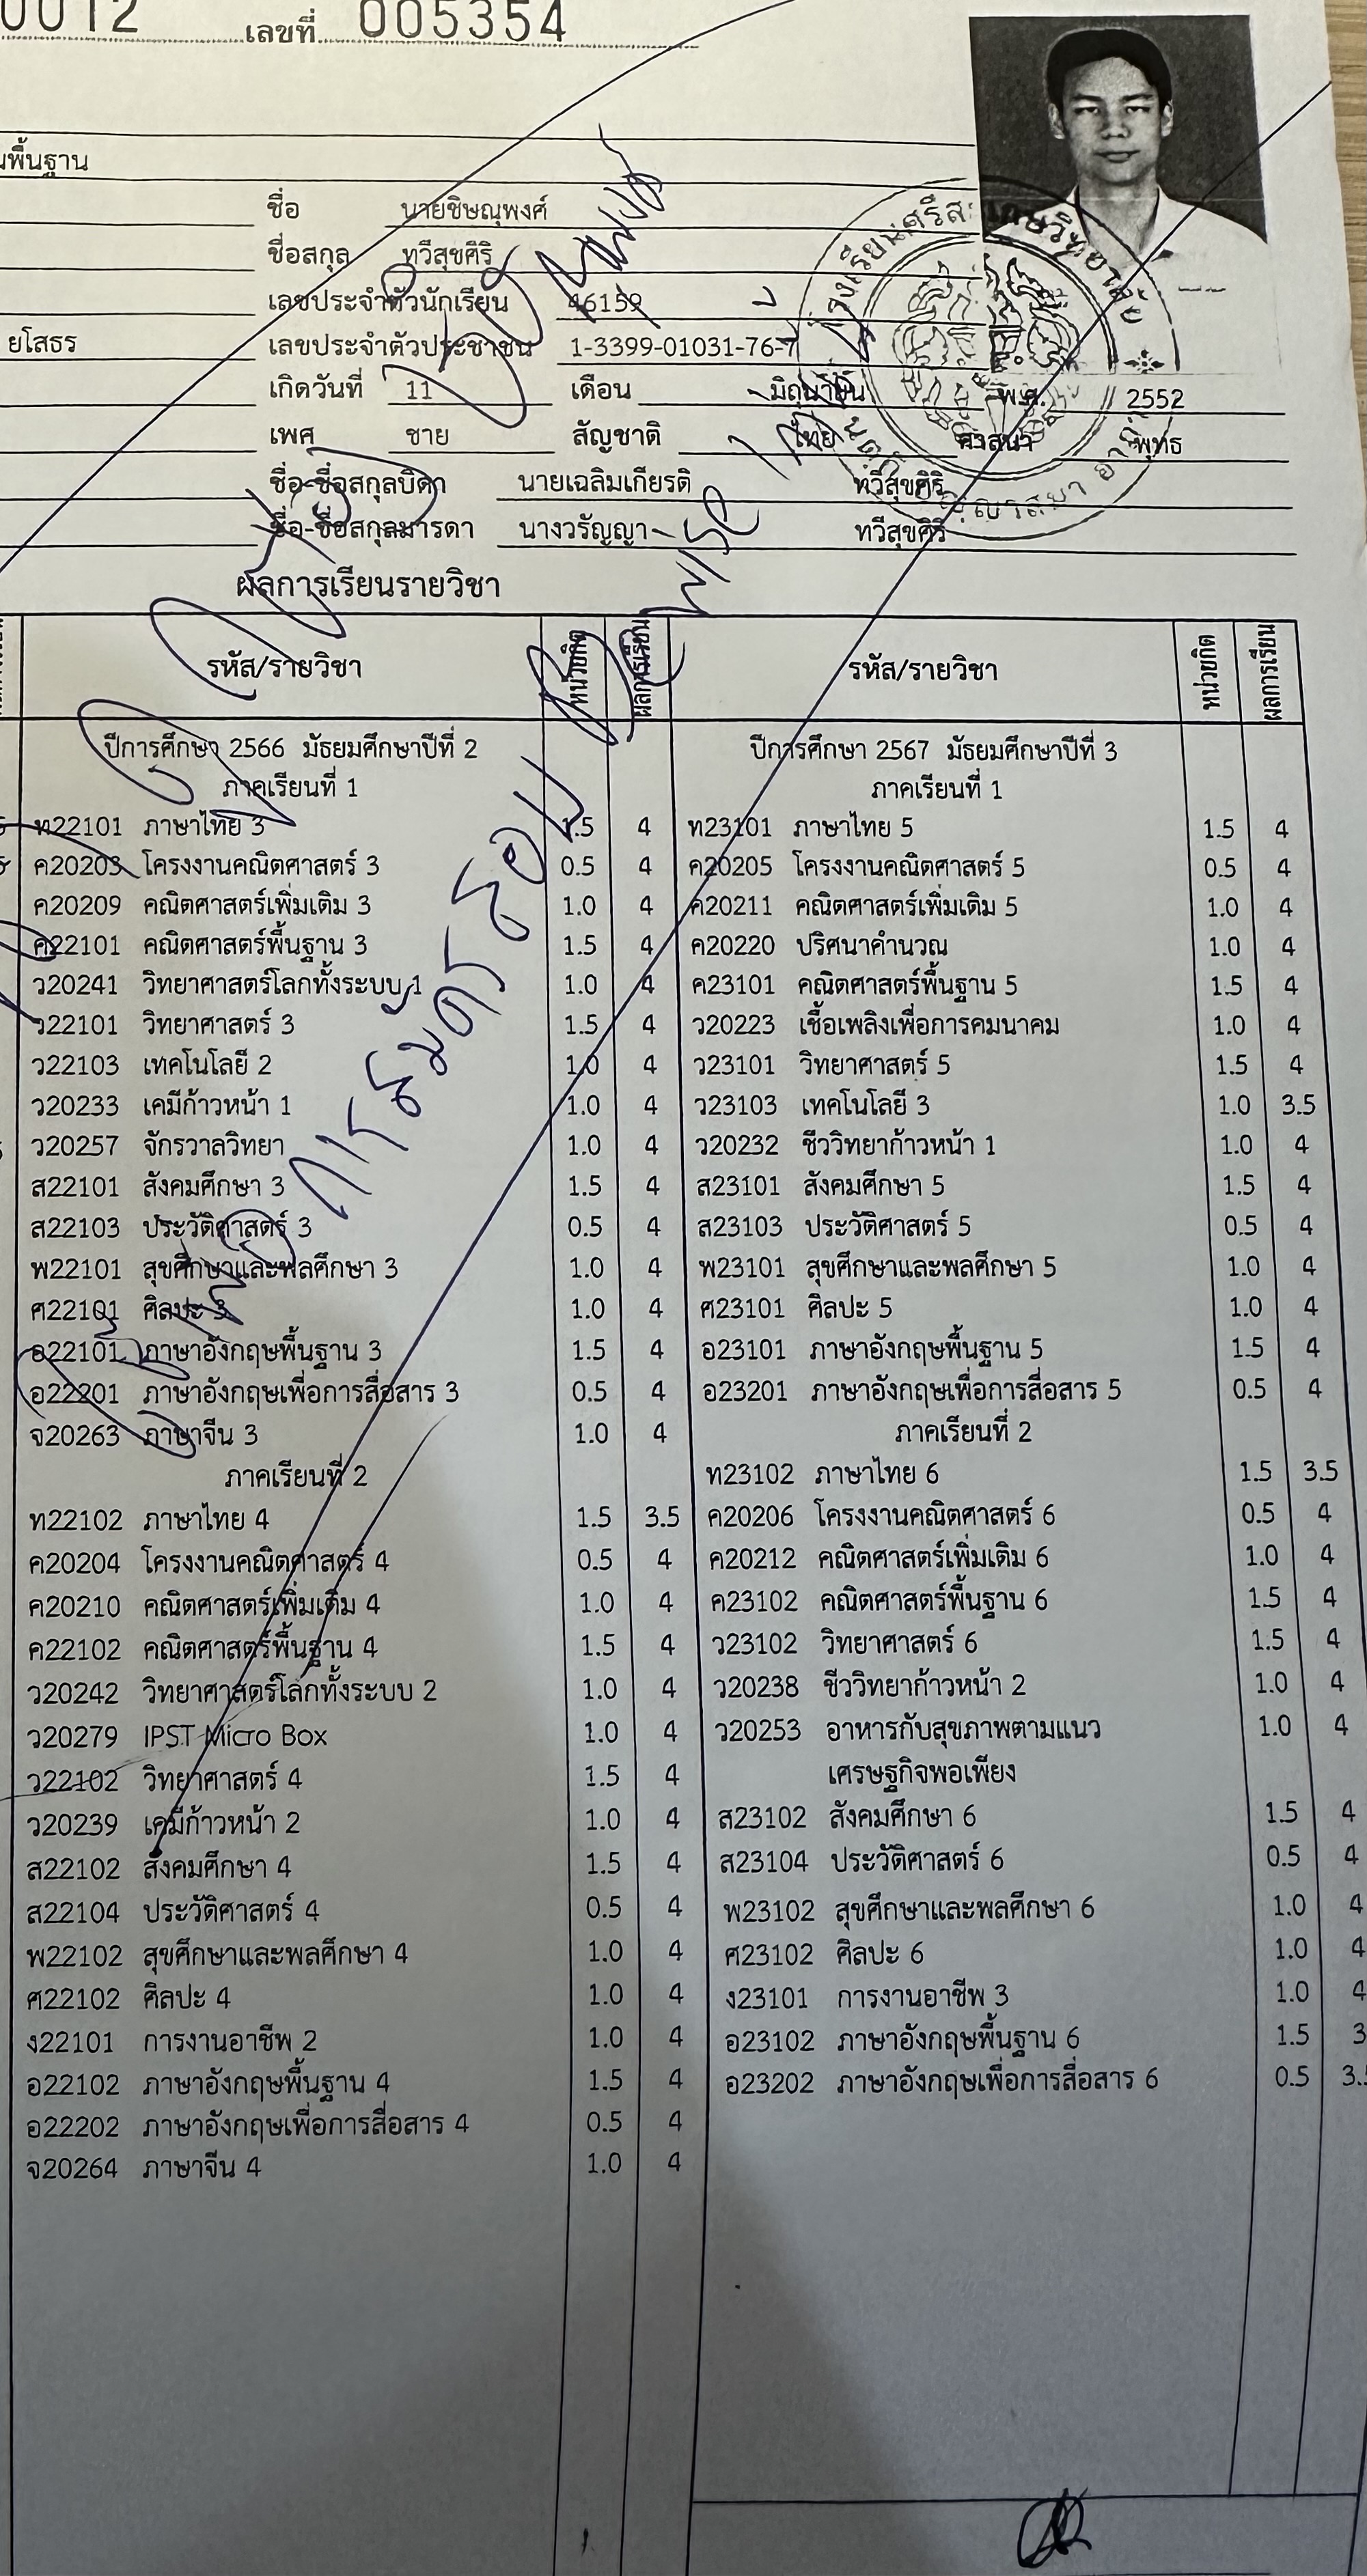 0012 เลขที่ 005354
นพื้นฐาน
ชื่อ นายชิษณุพงศ์
ชื่อสกุล ทวีสุขศิริ
เลขประจำตัวนักเรียน 46159
ยโสธร เลขประจำตัวประชาชน 1-3399-01031-76-7
เกิดวันที่ 11 เดือน มิถุนายน พ.ศ. 2552
เพศ ชาย สัญชาติ ไทย ศาสนา พุทธ
ชื่อ-ชื่อสกุลบิดา นายเฉลิมเกียรติ ทวีสุขศิริ
ชื่อ-ชื่อสกุลมารดา นางวรัญญา ทวีสุขศิริ
ผลการเรียนรายวิชา
รหัส/รายวิชา หน่วยกิต ผลการเรียน
ปีการศึกษา 2566 มัธยมศึกษาปีที่ 2
ภาคเรียนที่ 1
ท22101 ภาษาไทย 3 1.5 4
ค20203 โครงงานคณิตศาสตร์ 3 0.5 4
ค20209 คณิตศาสตร์เพิ่มเติม 3 1.0 4
ค22101 คณิตศาสตร์พื้นฐาน 3 1.5 4
ว20241 วิทยาศาสตร์โลกทั้งระบบ 1 1.0 4
ว22101 วิทยาศาสตร์ 3 1.5 4
ว22103 เทคโนโลยี 2 1.0 4
ว20233 เคมีก้าวหน้า 1 1.0 4
ว20257 จักรวาลวิทยา 1.0 4
ส22101 สังคมศึกษา 3 1.5 4
ส22103 ประวัติศาสตร์ 3 0.5 4
พ22101 สุขศึกษาและพลศึกษา 3 1.0 4
ศ22101 ศิลปะ 3 1.0 4
อ22101 ภาษาอังกฤษพื้นฐาน 3 1.5 4
อ22201 ภาษาอังกฤษเพื่อการสื่อสาร 3 0.5 4
จ20263 ภาษาจีน 3 1.0 4
ภาคเรียนที่ 2
ท22102 ภาษาไทย 4 1.5 3.5
ค20204 โครงงานคณิตศาสตร์ 4 0.5 4
ค20210 คณิตศาสตร์เพิ่มเติม 4 1.0 4
ค22102 คณิตศาสตร์พื้นฐาน 4 1.5 4
ว20242 วิทยาศาสตร์โลกทั้งระบบ 2 1.0 4
ว20279 IPST Micro Box 1.0 4
ว22102 วิทยาศาสตร์ 4 1.5 4
ว20239 เคมีก้าวหน้า 2 1.0 4
ส22102 สังคมศึกษา 4 1.5 4
ส22104 ประวัติศาสตร์ 4 0.5 4
พ22102 สุขศึกษาและพลศึกษา 4 1.0 4
ศ22102 ศิลปะ 4 1.0 4
ง22101 การงานอาชีพ 2 1.0 4
อ22102 ภาษาอังกฤษพื้นฐาน 4 1.5 4
อ22202 ภาษาอังกฤษเพื่อการสื่อสาร 4 0.5 4
จ20264 ภาษาจีน 4 1.0 4
รหัส/รายวิชา หน่วยกิต ผลการเรียน
ปีการศึกษา 2567 มัธยมศึกษาปีที่ 3
ภาคเรียนที่ 1
ท23101 ภาษาไทย 5 1.5 4
ค20205 โครงงานคณิตศาสตร์ 5 0.5 4
ค20211 คณิตศาสตร์เพิ่มเติม 5 1.0 4
ค20220 ปริศนาคำนวณ 1.0 4
ค23101 คณิตศาสตร์พื้นฐาน 5 1.5 4
ว20223 เชื้อเพลิงเพื่อการคมนาคม 1.0 4
ว23101 วิทยาศาสตร์ 5 1.5 4
ว23103 เทคโนโลยี 3 1.0 3.5
ว20232 ชีววิทยาก้าวหน้า 1 1.0 4
ส23101 สังคมศึกษา 5 1.5 4
ส23103 ประวัติศาสตร์ 5 0.5 4
พ23101 สุขศึกษาและพลศึกษา 5 1.0 4
ศ23101 ศิลปะ 5 1.0 4
อ23101 ภาษาอังกฤษพื้นฐาน 5 1.5 4
อ23201 ภาษาอังกฤษเพื่อการสื่อสาร 5 0.5 4
ภาคเรียนที่ 2
ท23102 ภาษาไทย 6 1.5 3.5
ค20206 โครงงานคณิตศาสตร์ 6 0.5 4
ค20212 คณิตศาสตร์เพิ่มเติม 6 1.0 4
ค23102 คณิตศาสตร์พื้นฐาน 6 1.5 4
ว23102 วิทยาศาสตร์ 6 1.5 4
ว20238 ชีววิทยาก้าวหน้า 2 1.0 4
ว20253 อาหารกับสุขภาพตามแนว 1.0 4
เศรษฐกิจพอเพียง
ส23102 สังคมศึกษา 6 1.5 4
ส23104 ประวัติศาสตร์ 6 0.5 4
พ23102 สุขศึกษาและพลศึกษา 6 1.0 4
ศ23102 ศิลปะ 6 1.0 4
ง23101 การงานอาชีพ 3 1.0 4
อ23102 ภาษาอังกฤษพื้นฐาน 6 1.5 3
อ23202 ภาษาอังกฤษเพื่อการสื่อสาร 6 0.5 3.5